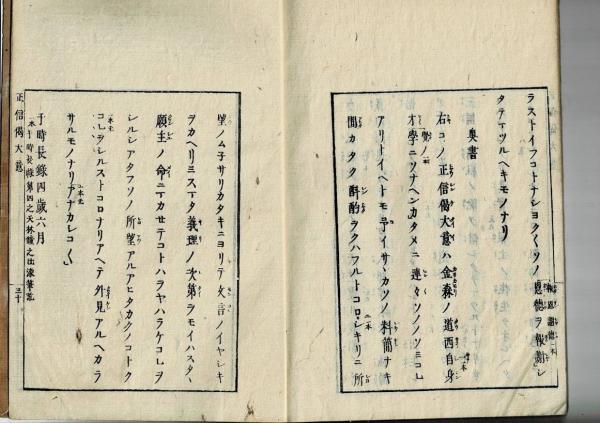 ラストイフコトナショク〳〵ソノ恩徳ヲ報謝シ
タテマツルヘキモノナリ
奥書
右コノ正信偈大意ハ金森ノ道西自身
才學ニソナヘンカタメニ連々ソノソミコレ
アリトイヘトモ予イサヽカソノ料簡ナキ
間カタク斟酌ヲクハフルトコロ、シキリニ所
望ノムネサリカタキニヨリテ文言ノイヤシキ
ヲカヘリミス又義理ノ次第ヲモイハスタヽ
願主ノ命ニマカセテコトハヲヤハラケコレヲ
シルシアタフソノ所望アルアヒタカクノコトク
コレヲシルストコロナリアヘテ外見アルヘカラ
サルモノナリアナカシコ〳〵
于時長祿四歳六月
正信偈大意
三十